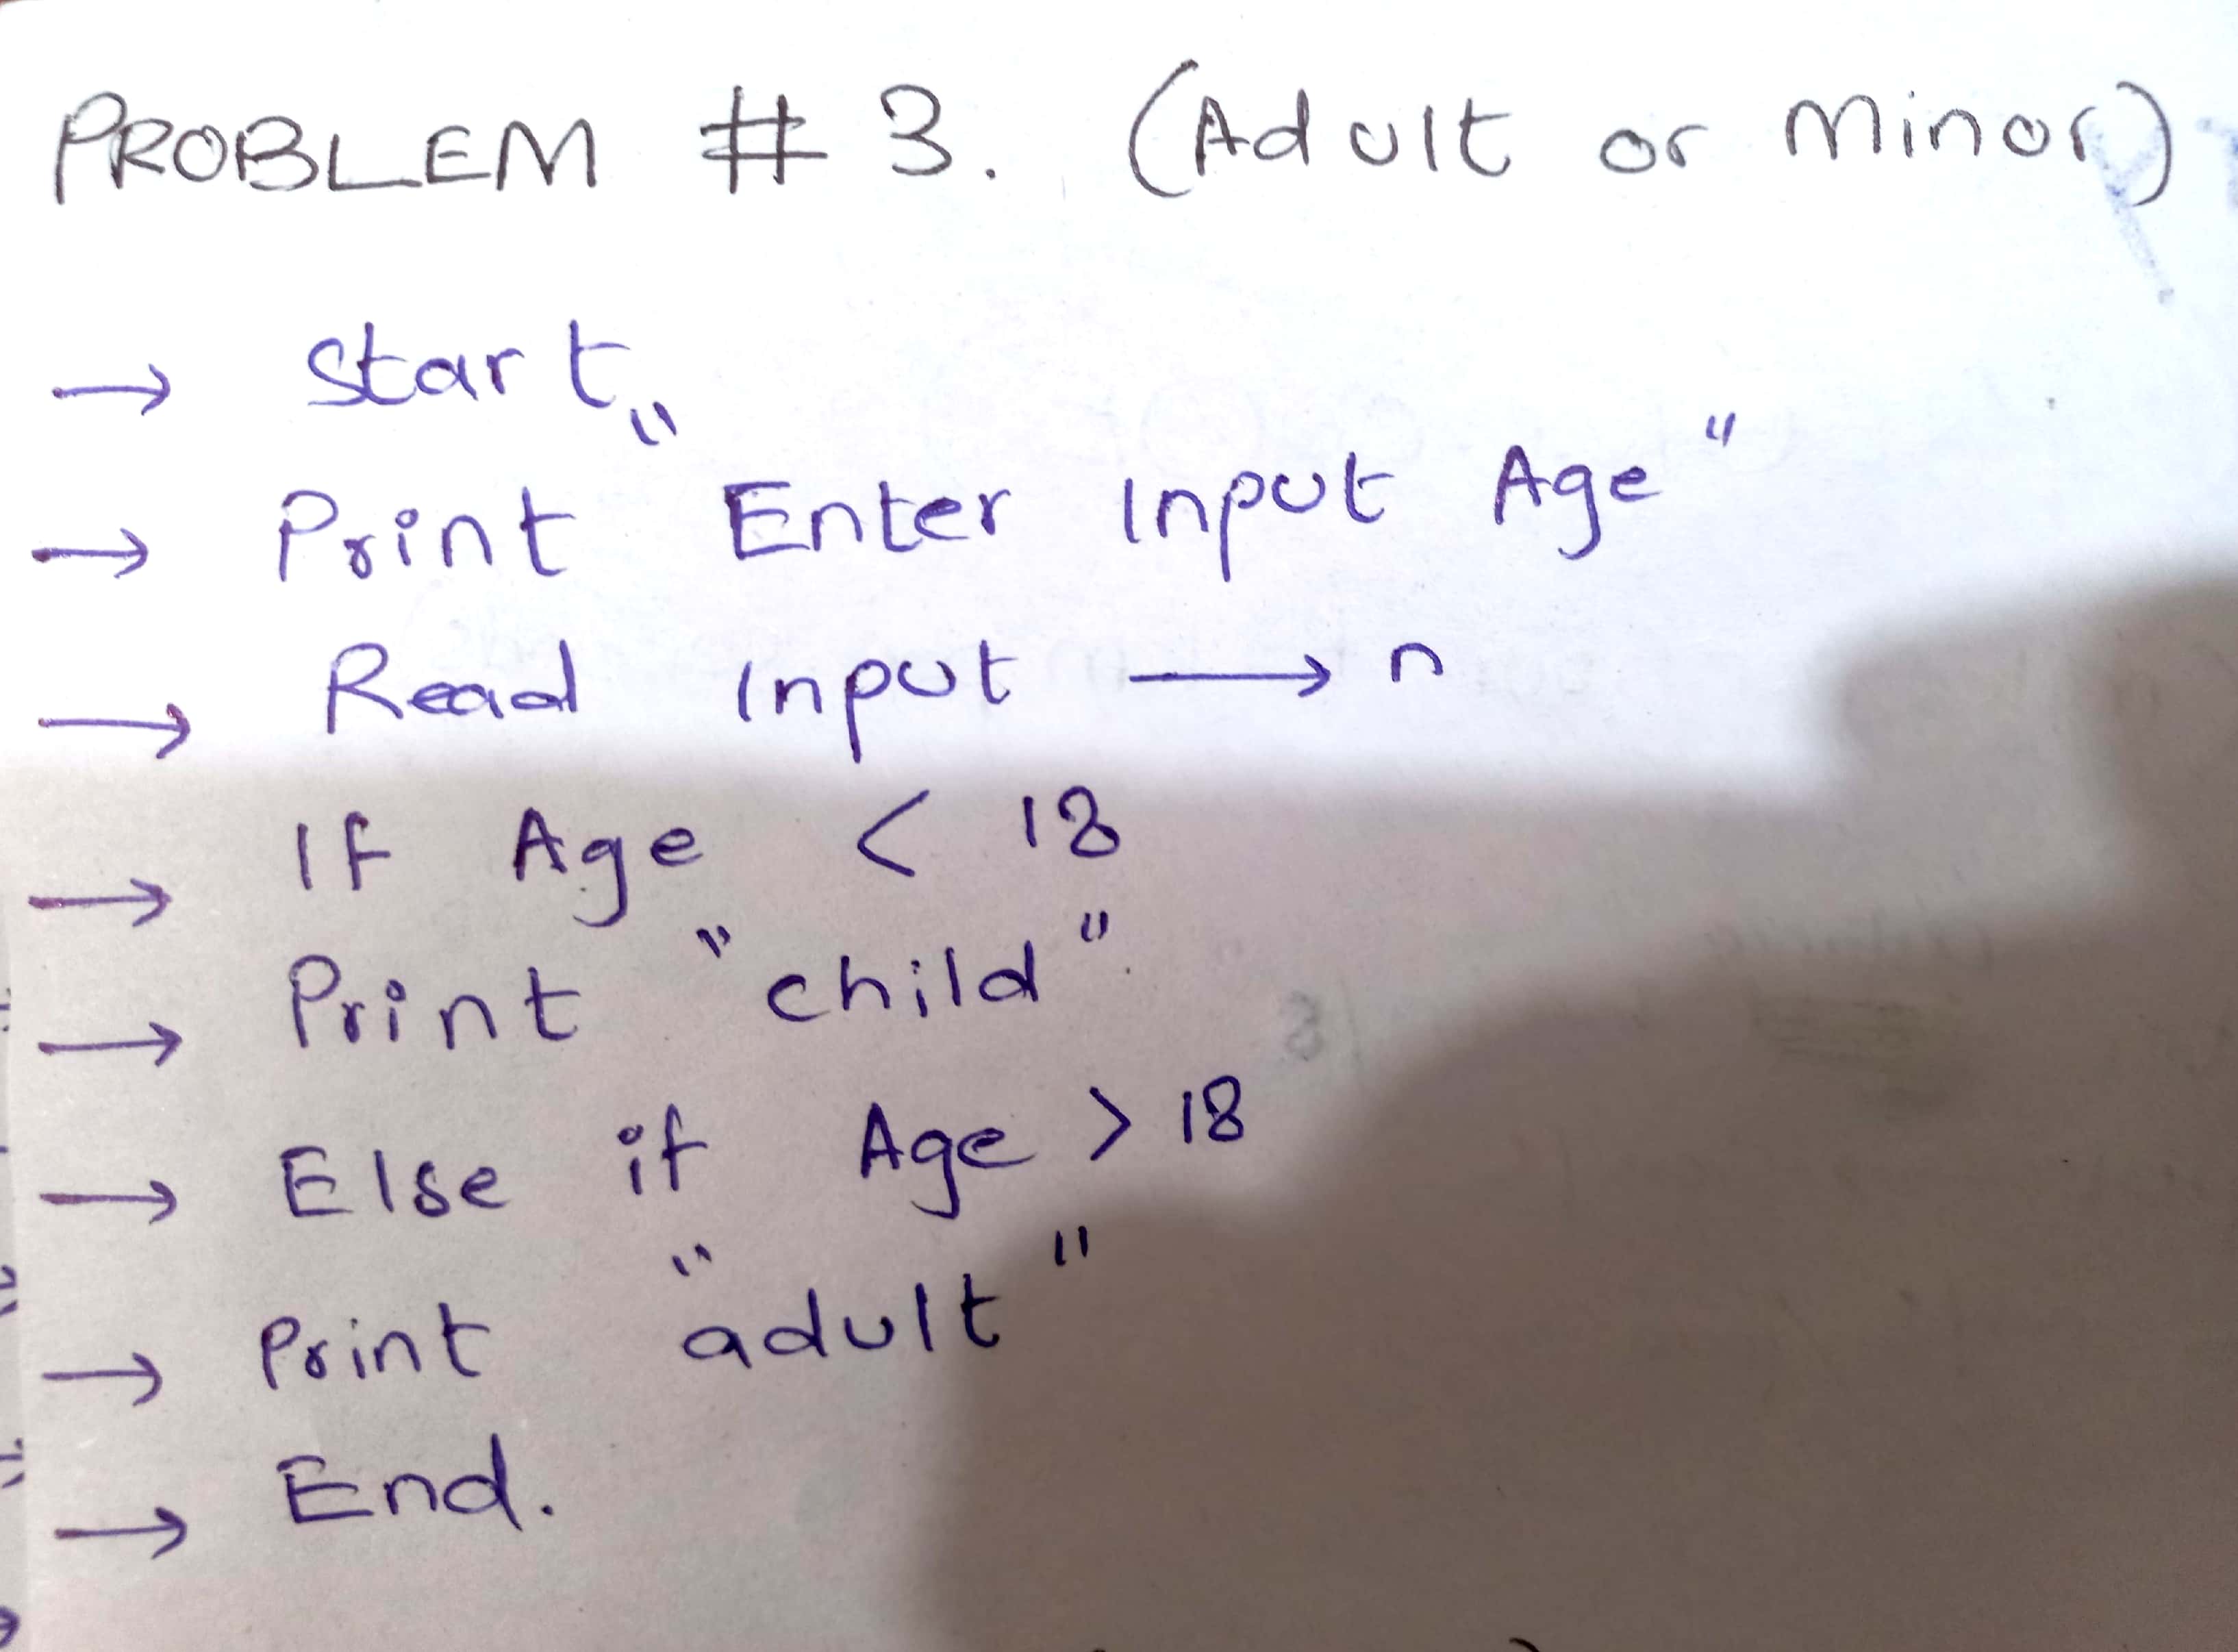 PROBLEM # 3. (Adult or Minor)
→ Start
→ Print "Enter Input Age"
→ Read Input → n
→ If Age < 18
→ Print "child"
→ Else if Age > 18
→ Print "adult"
→ End.